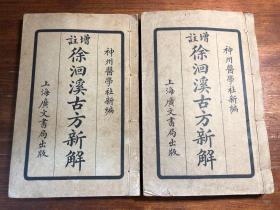 神州醫學社新編
增註
徐洄溪古方新解
上海廣文書局出版
神州醫學社新編
增註
徐洄溪古方新解
上海廣文書局出版